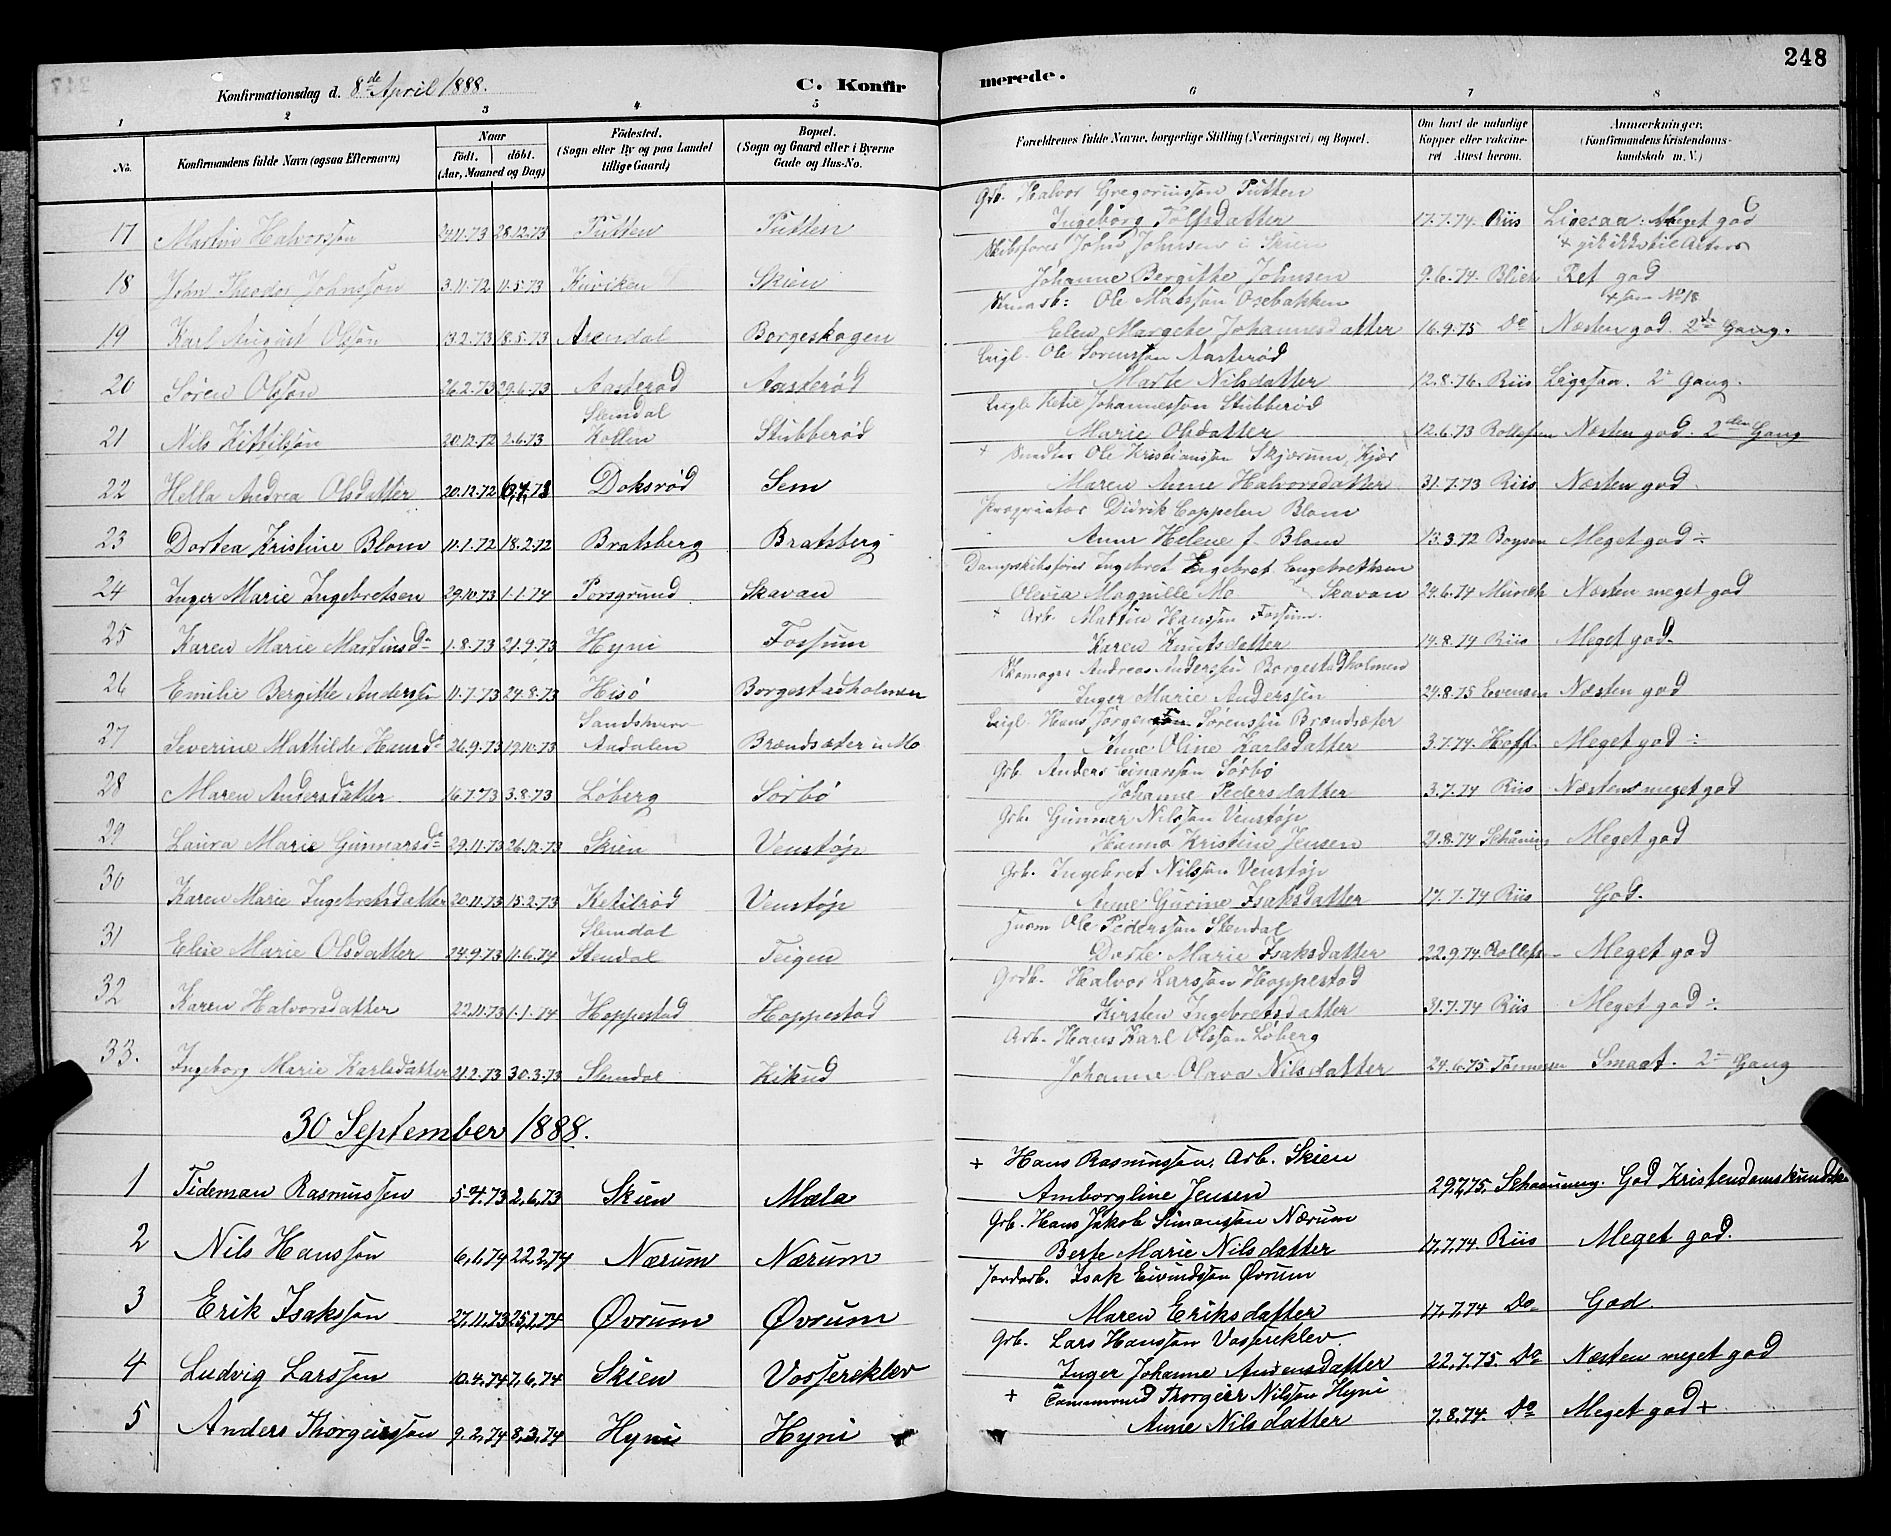 248
Konfirmationsdag d. 8de April 1888. C. Konfirmerede.
1 2 3 4 5 6 7 8
No. Konfirmandens fulde Navn (ogsaa Efternavn) Naar födt. döbt. (Aar, Maaned og Dag) Födested. (Sogn eller By og paa Landet tillige Gaard) Bopæl. (Sogn og Gaard eller i Byerne Gade og Hus-No. Forældrenes fulde Navne, borgerlige Stilling (Næringsvei) og Bopæl. Om havt de naturlige Kopper eller vaccineret Attest herom. Anmærkninger. (Konfirmandens Kristendomskundskab m. V.)
Grb. Halvor Gregoriussøn Putten
17 Martin Halvorssøn 24.11.73 28.12.73 Putten Putten Ingeborg Tolfsdatter 17.7.74 Riis Ligesaa. Meget god
Skibsfører John Johnsen i Skien + gik ikke til Alters
18 John Theodor Johnssøn 3.11.72 11.5.73 Kirviken Skien Johanne Bergitte Johnsen 9.6.74 Blich Ret god
Ole Madssøn Osebakken + som No 18
19 Karl August Olsøn 13.2.73 18.5.73 Arendal Borgeskogen Elen Margrethe Johannesdatter 16.9.75 Do Næsten god. 2de Gang.
Ole Sørenssøn Aasterød
20 Søren Olssøn 26.2.73 29.6.73 Aasterød Aasterød Marte Nilsdatter 12.8.76. Riis Ligesaa. 2de Gang.
Slemdal Ketil Johannessøn Stubberød
21 Nils Kittilsøn 20.12.72 2.6.73 Kollen Stubberød Marie Olsdatter 12.6.73 Rollefsen Næsten god. 2den Gang
+ Ole Kristianssøn Skjærum, Kjær
22 Hella Andrea Olsdatter 20.12.72 6,4,73 Doksrød Sem Maren Anne Halvorsdatter 31.7.73 Riis Næsten god.
Proprietær Didrik Cappelen Blom
23 Dortea Kristine Blom 11.1.72 18.2.72 Bratsberg Bratsberg Anne Helene f. Blom 13.3.72 Boysen Meget god ÷
Dampskibsfører Ingebret Engebrethsen
24 Inger Marie Ingebretsen 29.10.73 1.1.74 Porsgrund Skavan Olevia Magnille Mo Skavan 24.6.74 Münch Næsten meget god
+ Arb. Martin Hanssøn Fossum.
25 Karen Marie Martinsdr 1.8.73 21.9.73 Hyni Fossum Karen Knutsdatter 14.8.74 Riis Meget god.
Skomager Andreas Anderssen Borgestadholmen
26 Emilie Bergitte Anderssen 11.7.73 24.8.73 Hisö Borgestadholmen Inger Marie Anderssen 24.8.75 Evensen Næsten god
Sandsherv Hans Jørgen Sørenssen Brændsæter
27 Severine Mathilde Hansdr 26.9.73 19.10.73 Aadalen Brændsæter u/ Mo Anne Oline Karlsdatter 3.7.74. Hoff. Meget god ÷
Grb. Anders Einarssøn Sørbø
28 Maren Andersdatter 16.7.73 3.8.73 Løberg Sørbö Johanne Pedersdatter 3.7.74 Riis Næsten meget god
Grb. Gunnar Nilssøn Venstøp
29 Laura Marie Gunnarsdr 29.11.73 26.12.73 Skien Venstøp Hanna Kristine Jensen 21.8.74 Schåning Meget god
Grb. Ingebret Nilssøn Venstøp
30 Karen Marie Ingebretsdatter 20.11.73 15.2.73 Ketilrød Venstøp Anne Gurine Isaksdatter 17.7.74 Riis God.
Slemdal Husm Ole Pederssøn Stendal
31 Elise Marie Olsdatter 24.9.73 11.6.74 Stendal Teigen Dorte Marie Isaksdatter 22.9.74. Rollefs Meget god
Grdb. Halvor Larssøn Hoppestad
32 Karen Halvorsdatter 22.11.73 1.1.74 Hoppestad Hoppestad Kirsten Ingebretsdatter 31.7.74 Riis Meget god ÷
Arb. Hans Karl Olssøn Løberg
33. Ingeborg Marie Karlsdatter 21.2.73 30.3.73 Slemdal Kikud Johanne Olava Nilsdatter 24.6.75 Tønnesen Smaat. 2de Gang
30 September 1888.
+ Hans Rasmussen, Arb. Skien
1 Tideman Rasmussen 5.4.73 2,6,73 Skien Mæla Amborgline Jensen 29,7,75. Schaaning. God Kristendomskundsk
Grb. Hans Jakob Simonssøn Nærum
2 Nils Hanssøn 6,1,74 22,2,74 Nærum Nærum Berte Marie Nilsdatter 17,7,74. Riis Meget god.
Jordarb. Isak Eivindssøn Øvrum
3 Erik Isakssøn 27,11,73 25,1,74 Øvrum Øvrum Maren Eriksdatter 17,7,74 Do God.
Grb. Lars Hanssøn Vassereklev
4 Ludvig Larssen 10.4.74 7,6,74 Skien Vossereklev Inger Johanne Andersdatter 22,7.75. Do Næsten meget god
+ Tømmermd Thorgeir Nilssøn Hyni
5 Anders Thorgeirssøn 9.2,74 8,3,74 Hyni Hyni Anne Nilsdatter 7.8.74. Do Meget god +